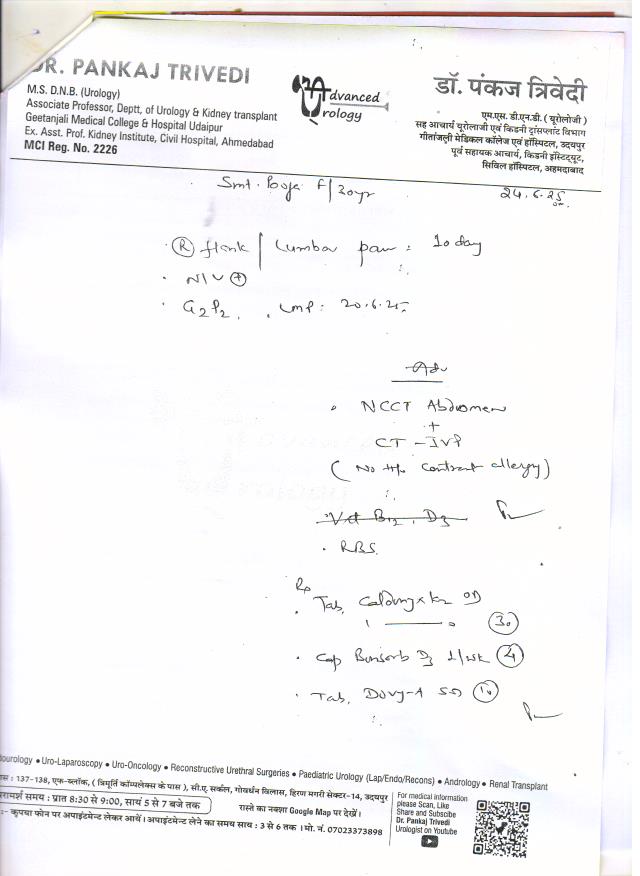 DR. PANKAJ TRIVEDI
M.S. D.N.B. (Urology)
Associate Professor, Deptt, of Urology & Kidney transplant
Geetanjali Medical College & Hospital Udaipur
Ex. Asst. Prof. Kidney Institute, Civil Hospital, Ahmedabad
MCI Reg. No. 2226
Advanced
Urology
डॉ. पंकज त्रिवेदी
एम.एस. डी.एन.बी. ( यूरोलोजी )
सह आचार्य यूरोलाजी एवं किडनी ट्रांसप्लांट विभाग
गीतांजली मेडिकल कॉलेज एवं हॉस्पिटल, उदयपुर
पूर्व सहायक आचार्य, किडनी इंस्टिट्यूट,
सिविल हॉस्पिटल, अहमदाबाद
Smt. Pooja F/30yr
24.6.25
(R) flank / Lumbar pain : 10 day
N/V (+)
G2P2, LMP: 20.6.25
Adv
NCCT Abdomen
+
CT-IVP
(No H/o Contrast allergy)
Vit B12, D3
RBS
Rp
Tab. OD
1 0 (30)
Cap D3 1/wk (4)
Tab. (10)
Uro-Laparoscopy • Uro-Oncology • Reconstructive Urethral Surgeries • Paediatric Urology (Lap/Endo/Recons) • Andrology • Renal Transplant
137-138, एफ-ब्लॉक, ( त्रिमूर्ति कॉम्पलेक्स के पास ), सी.ए. सर्कल, गोवर्धन विलास, हिरण मगरी सेक्टर-14, उदयपुर
समय : प्रात 8:30 से 9:00, सायं 5 से 7 बजे तक
रास्ते का नक्शा Google Map पर देखें।
कृपया फोन पर अपाइंटमेन्ट लेकर आयें। अपाइंटमेन्ट लेने का समय सायं : 3 से 6 तक । मो. नं. 07023373898
For medical information
please Scan, Like
Share and Subscibe
Dr. Pankaj Trivedi
Urologist on Youtube